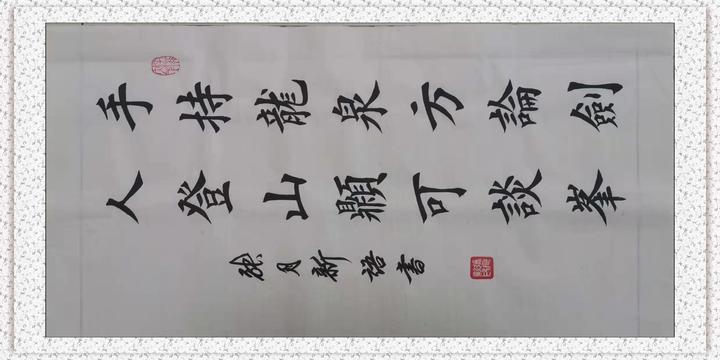 手持龍泉方論劍
人登山顛可談峯
月新語書